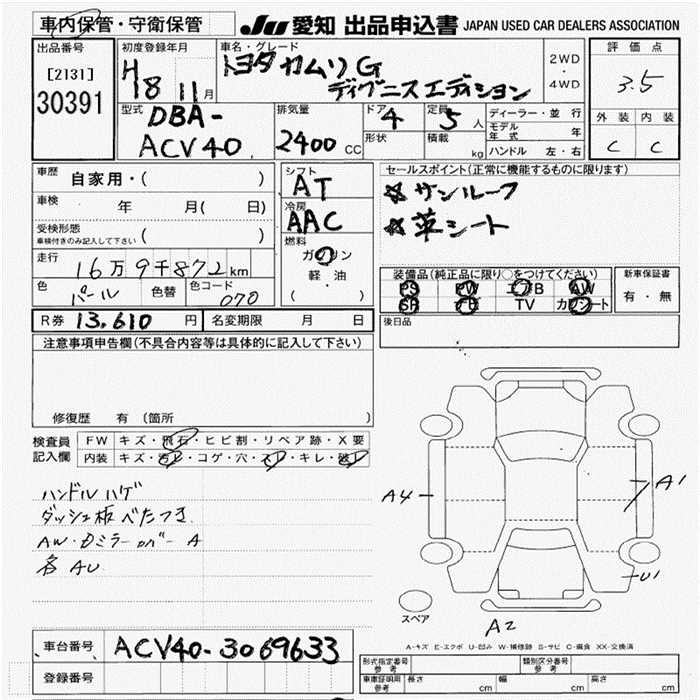 車内保管・守衛保管 JU 愛知 出品申込書 JAPAN USED CAR DEALERS ASSOCIATION
出品番号
[2131]
30391
初度登録年月
H18 11月
車名・グレード
トヨタ カムリ G
ディグニスエディション
2WD
・
4WD
評価点
3.5
外装 内装
C C
型式
DBA-
ACV40
排気量
2400 CC
ドア 4
形状
定員 5 人
積載 kg
ディーラー・並行
モデル年式 年
ハンドル 左・右
車歴 自家用・( )
車検 年 月( 日)
受検形態
車検付きのみ記入して下さい ( )
走行 16万9千872 km
色 パール 色替 色コード 070
シフト
AT
冷房
AAC
燃料
ガソリン
軽・油
( )
セールスポイント(正常に機能するものに限ります)
☆サンルーフ
☆革シート
装備品(純正品に限り○をつけてください)
PS PW エアB AW
SR ナビ TV カワシート
新車保証書
有・無
後日品
R券 13,610 円 名変期限 月 日
注意事項申告欄(不具合内容等は具体的に記入して下さい)
修復歴 有(箇所 )
検査員
記入欄
FW キズ・飛石・ヒビ割・リペア跡・X要
内装 キズ・汚レ・コゲ・穴・スレ・キレ・破レ
ハンドルハゲ
ダッシュ板べたつき
AW・Dミラーカバー A
各 AU
A4
A1
U1
A2
スペア
A-キズ E-エクボ U-凹み W-補修跡 S-サビ C-腐食 XX-交換済
車台番号 ACV40-3069633
登録番号
形式指定番号
参考
類別区分番号
参考
車庫証明用
参考
長さ cm
幅 cm
高さ cm